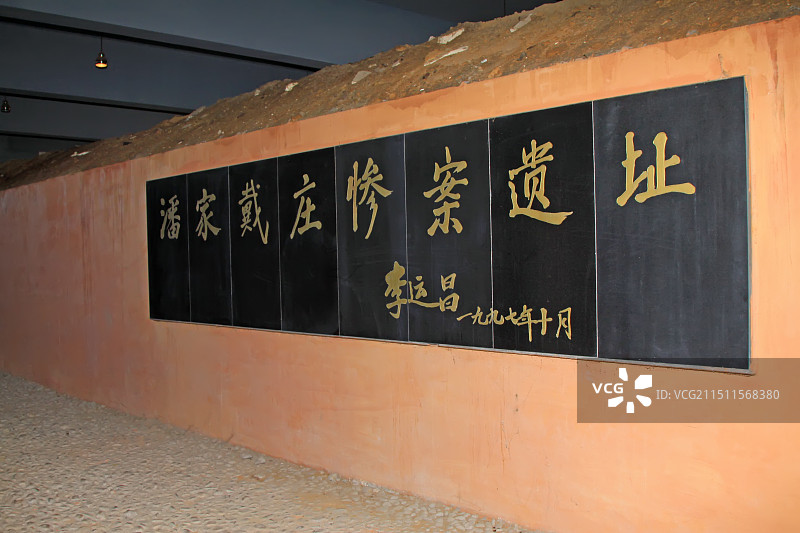 潘家戴庄惨案遗址
李运昌
一九九七年十月
VCG
ID:VCG211511568380